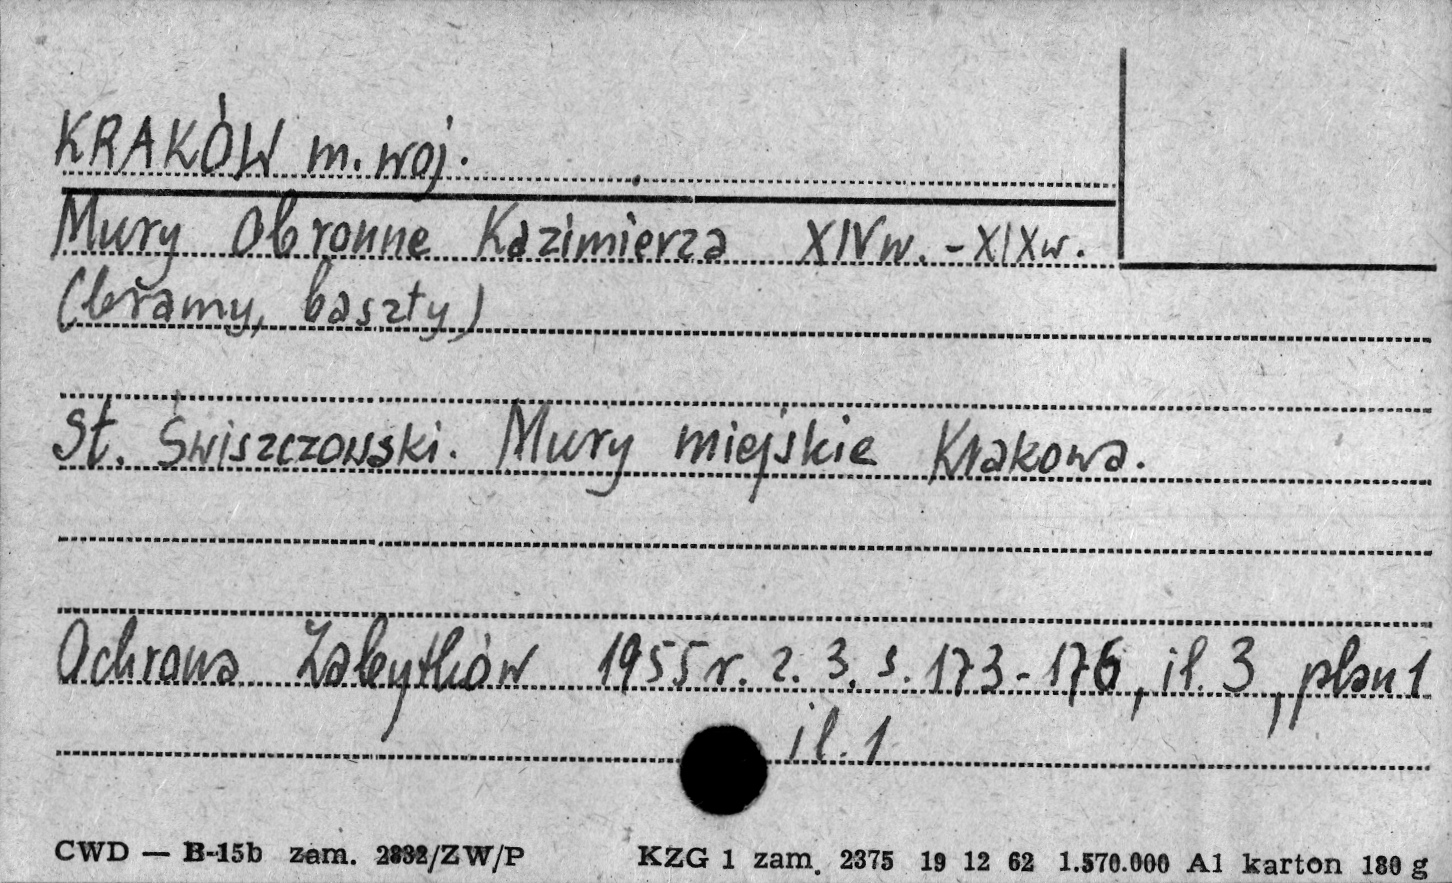 KRAKÓW m. woj.
Mury Obronne Kazimierza XIVw. - XIXw.
(bramy, baszty)
St. Świszczowski. Mury miejskie Krakowa.
Ochrona Zabytków 1955 r. z. 3. s. 173-176, il. 3, plan 1
il. 1
CWD — B-15b zam. 2832/ZW/P KZG 1 zam. 2375 19 12 62 1.570.000 A1 karton 180 g